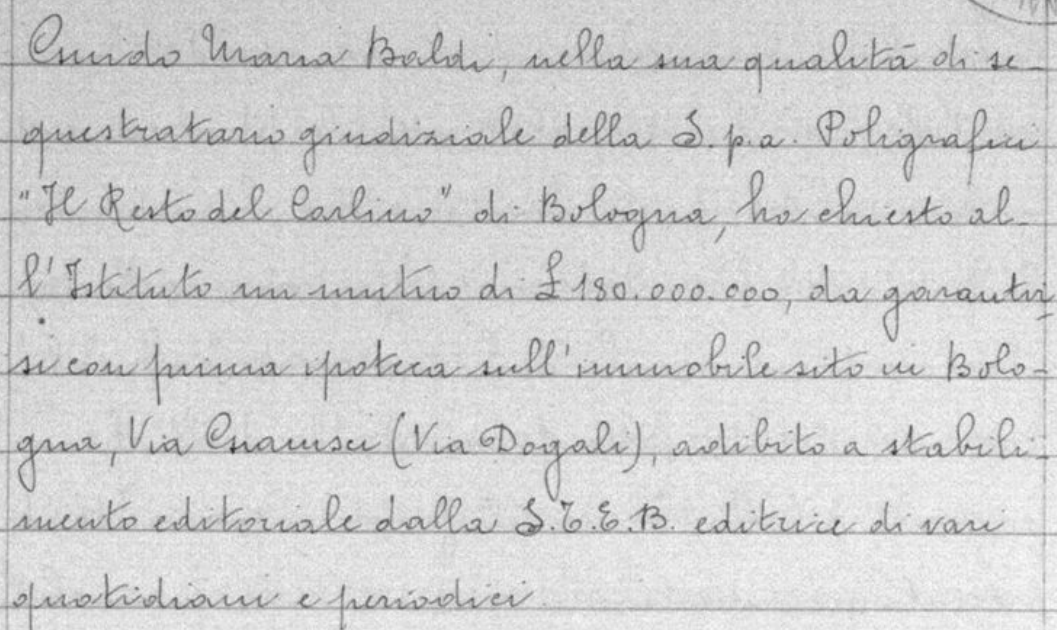 Guido Maria Baldi, nella sua qualità di se-
questratario giudiziale della S.p.a. Poligrafici
"Il Resto del Carlino" di Bologna, ha chiesto al-
l'Istituto un mutuo di £ 180.000.000, da garantir
si con prima ipoteca sull'immobile sito in Bolo-
gna, Via Gramsci (Via Dogali), adibito a stabili-
mento editoriale dalla S.T.E.B. editrice di vari
quotidiani e periodici